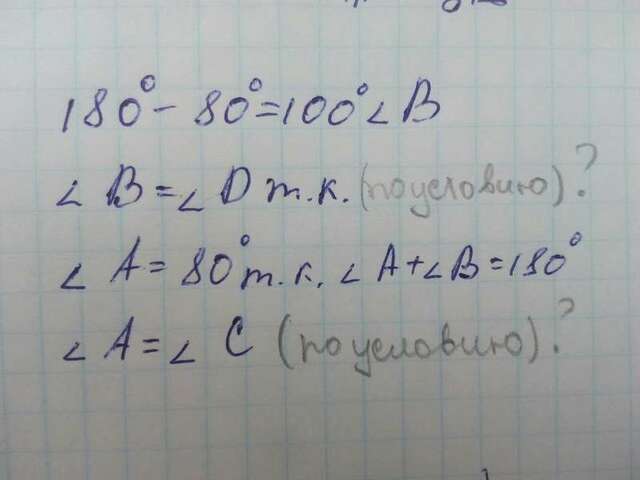 180° - 80° = 100° ∠B
∠B = ∠D т.к. (по условию)?
∠A = 80° т.к. ∠A + ∠B = 180°
∠A = ∠C (по условию)?